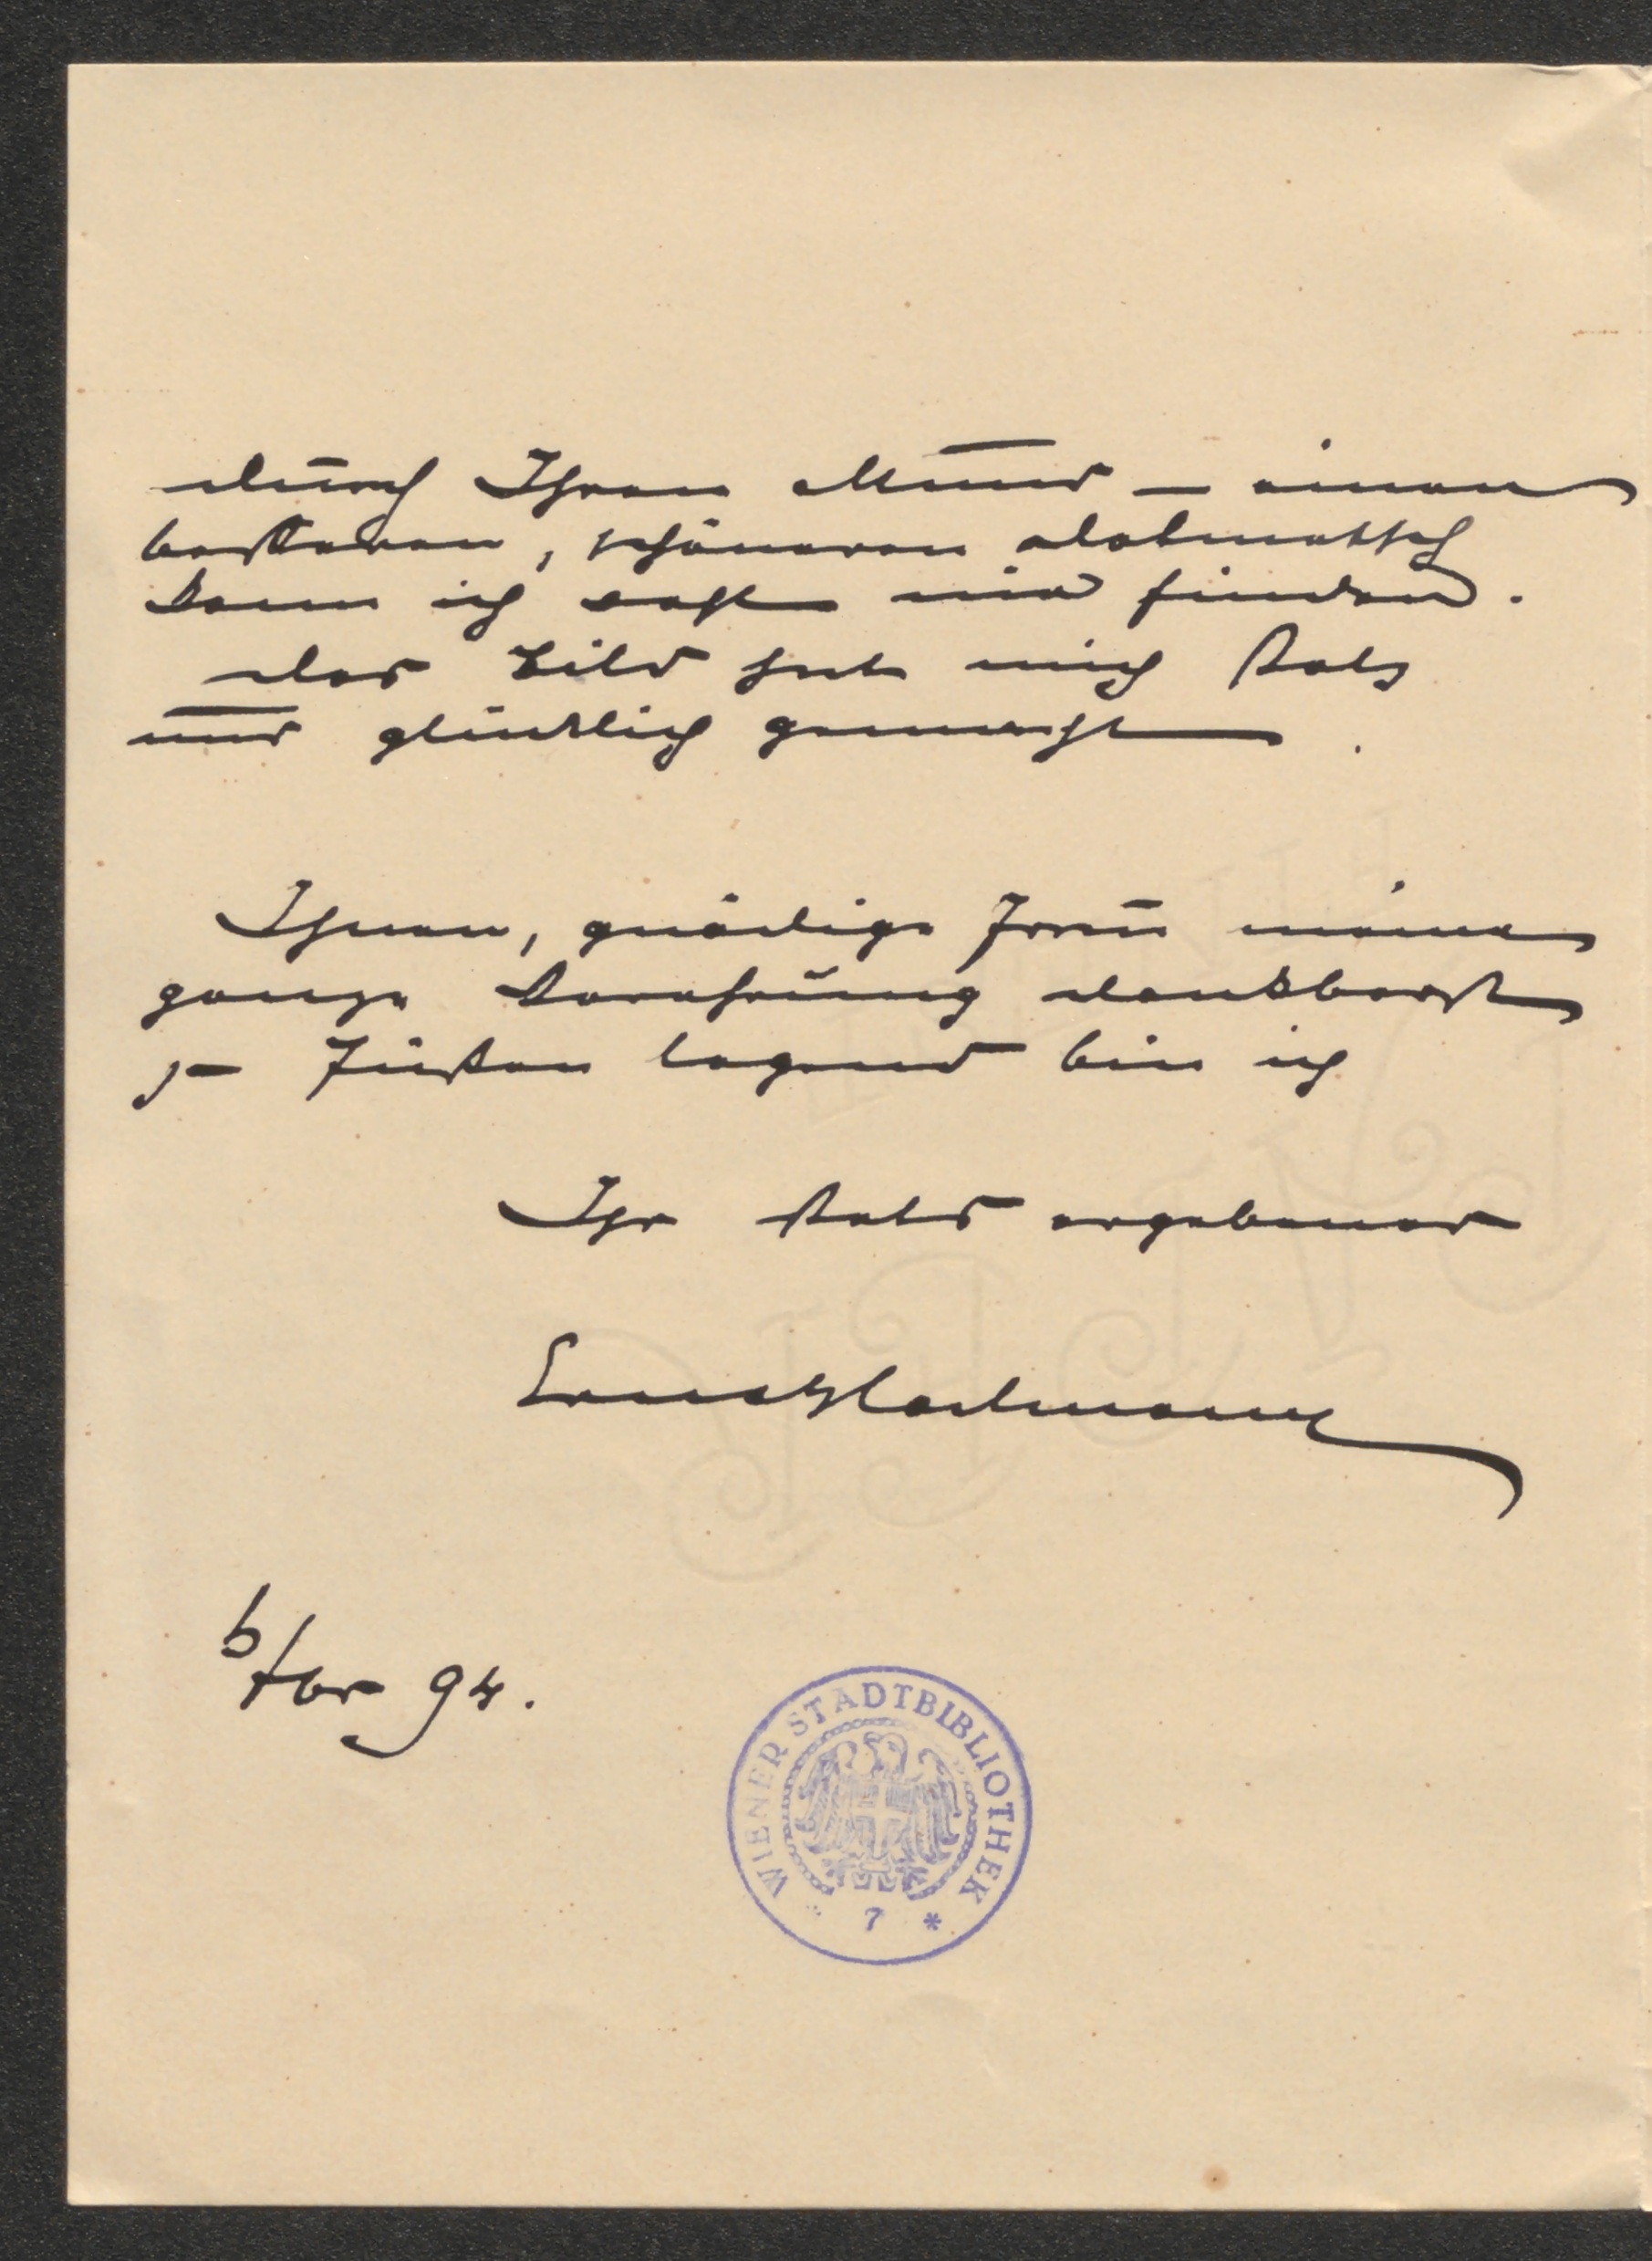 durch Ihren Mund – einen
besseren, schöneren dolmetsch
kann ich wohl nie finden.
das Bild hat mich stolz
und glücklich gemacht.
Ihnen, gnädige Frau meine
ganze Verehrung dankbarst
zu Füßen legend bin ich
Ihr stets ergebener
Ernst Hartmann
94.
WIENER STADTBIBLIOTHEK
* 7 *